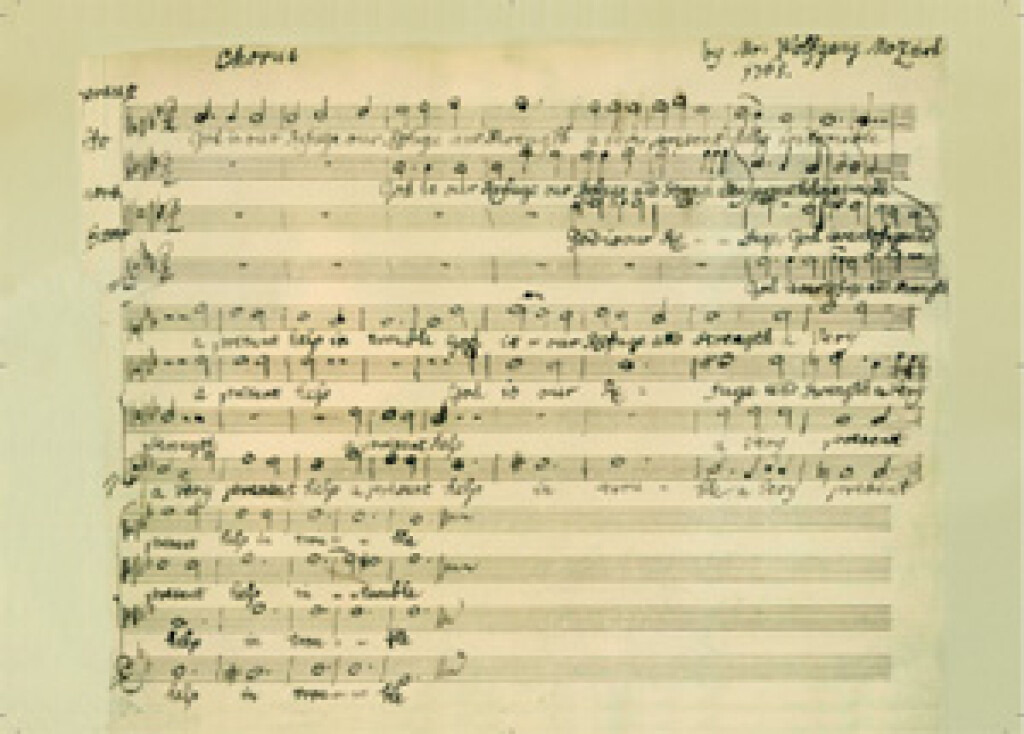 Chorus
by Mr. Wolfgang Mozart
1765.
God is our Refuge our Refuge and Strength a very present help in trouble
God is our Refuge our Refuge and Strength a very present help in trouble
God is our Re - - fuge God is our refuge and
God is our refuge and strength
a present help in trouble God is - our Refuge and strength a Very
a present help God is our Re - fuge and Strength a very
strength a present help a very present
a very present help a present help in trou - ble a Very present
present help in trou - - ble
present help in - trouble
help in trou - - ble
help in trou - - ble